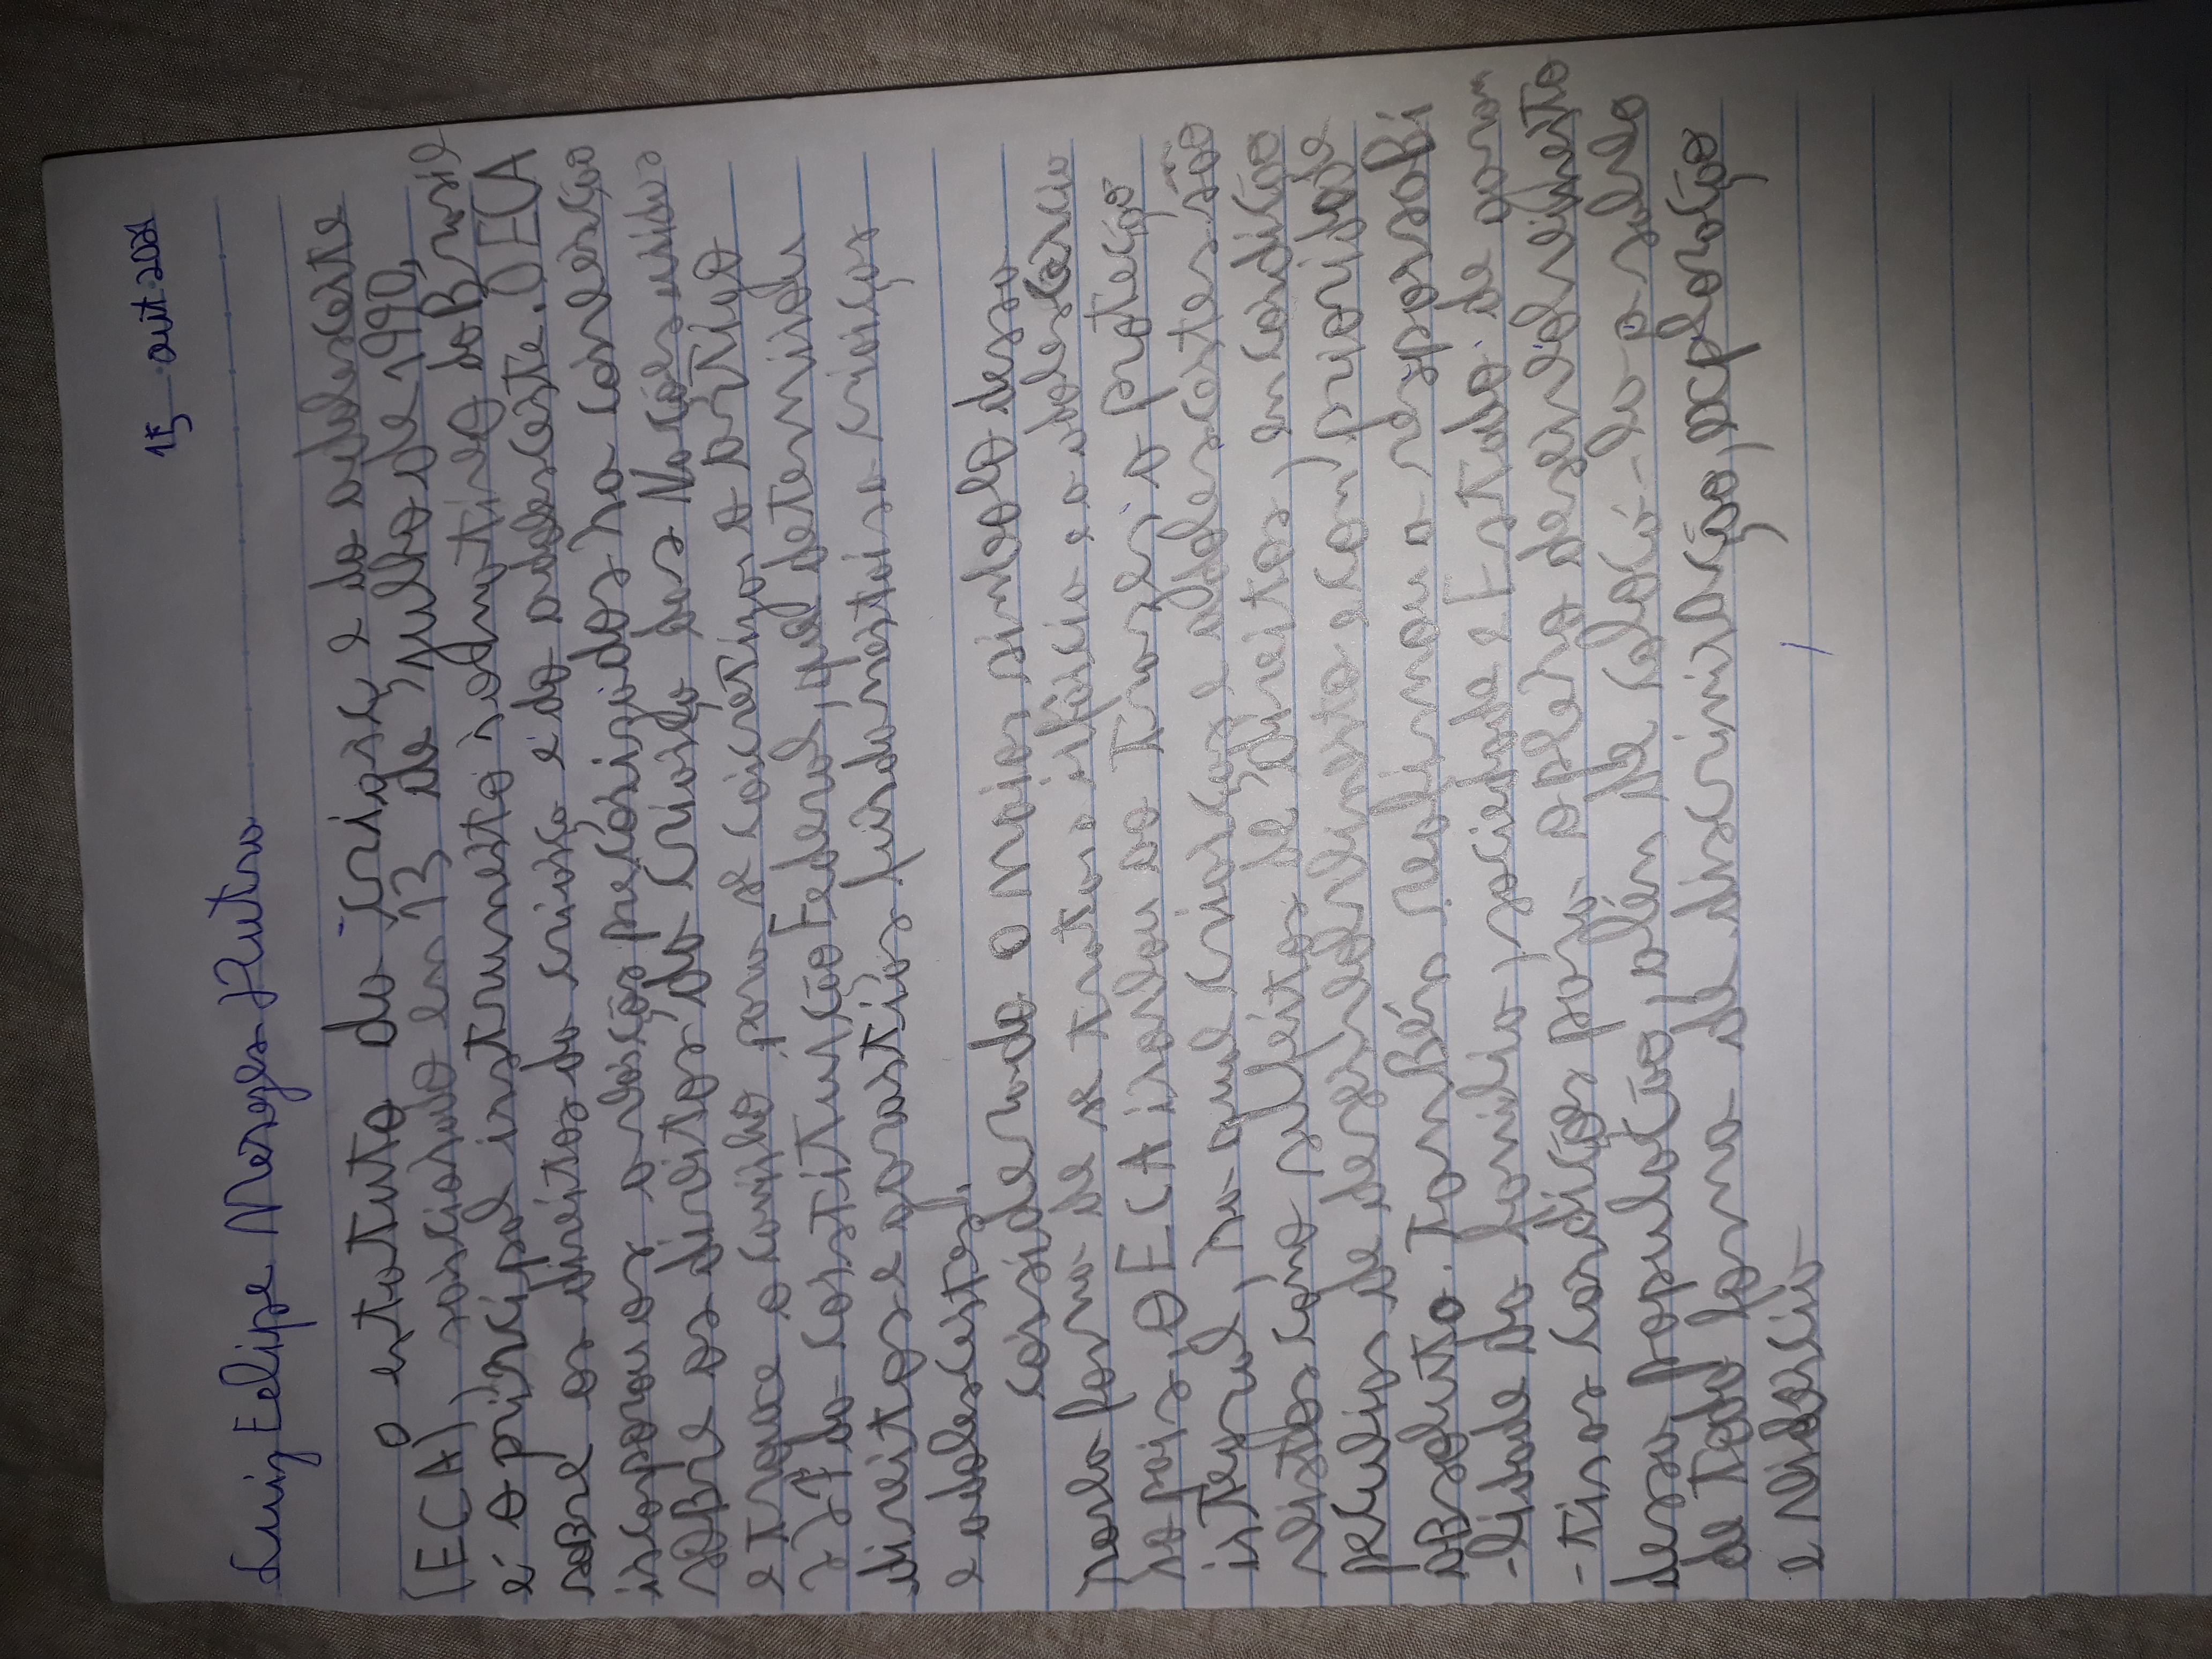 15 out 2021
Luiz Felipe Menezes Dutra
o estatuto da crianç e do adolescente
(ECA), sancionado em 13 de julho de 1990,
é o principal instrumento normativo do Brasil
sobre os direitos da criança e do adolescente. O ECA
incorporou os avanços preconizados na convenção
sobre os direitos da criança das Nações unidas
e trouxe o caminho para se concretizar o artigo
227 da constituição Federal, que determinou
direitos e garantias fundamentais a crianças
e adolescentes.
considerado o maior simbolo dessa
nova forma de se tratar a infância e a adolescência
no pais, o ECA inovou ao trazer a proteção
integral, na qual crianças e adolescentes são
vistos como sujeitos de direitos, em condição
peculiar de desenvolvimento e com prioridade
absoluta. também reafimou a responsabi
-lidade da familia, sociedade e Estado de garan
-tir as condições para o pleno desenvolvimento
dessa população, além de colocá-la a salvo
de toda forma de discriminação, exploração
e violencia